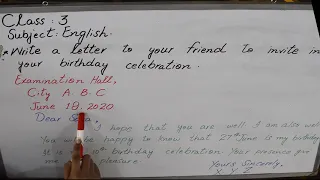 Class : 3
Subject : English.
Write a letter to your friend to invite in
your birthday celebration.
Examination Hall,
City A.B.C
June 18, 2020.
Dear
I hope that you are well. I am also well
You will be happy to know that 27th June is my birthday
birthday celebration. Your presence
me pleasure
Yours Sincerely,
X. Y. Z